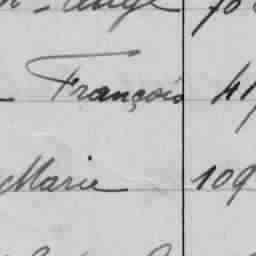 Ange 70
François 41
Marie 109